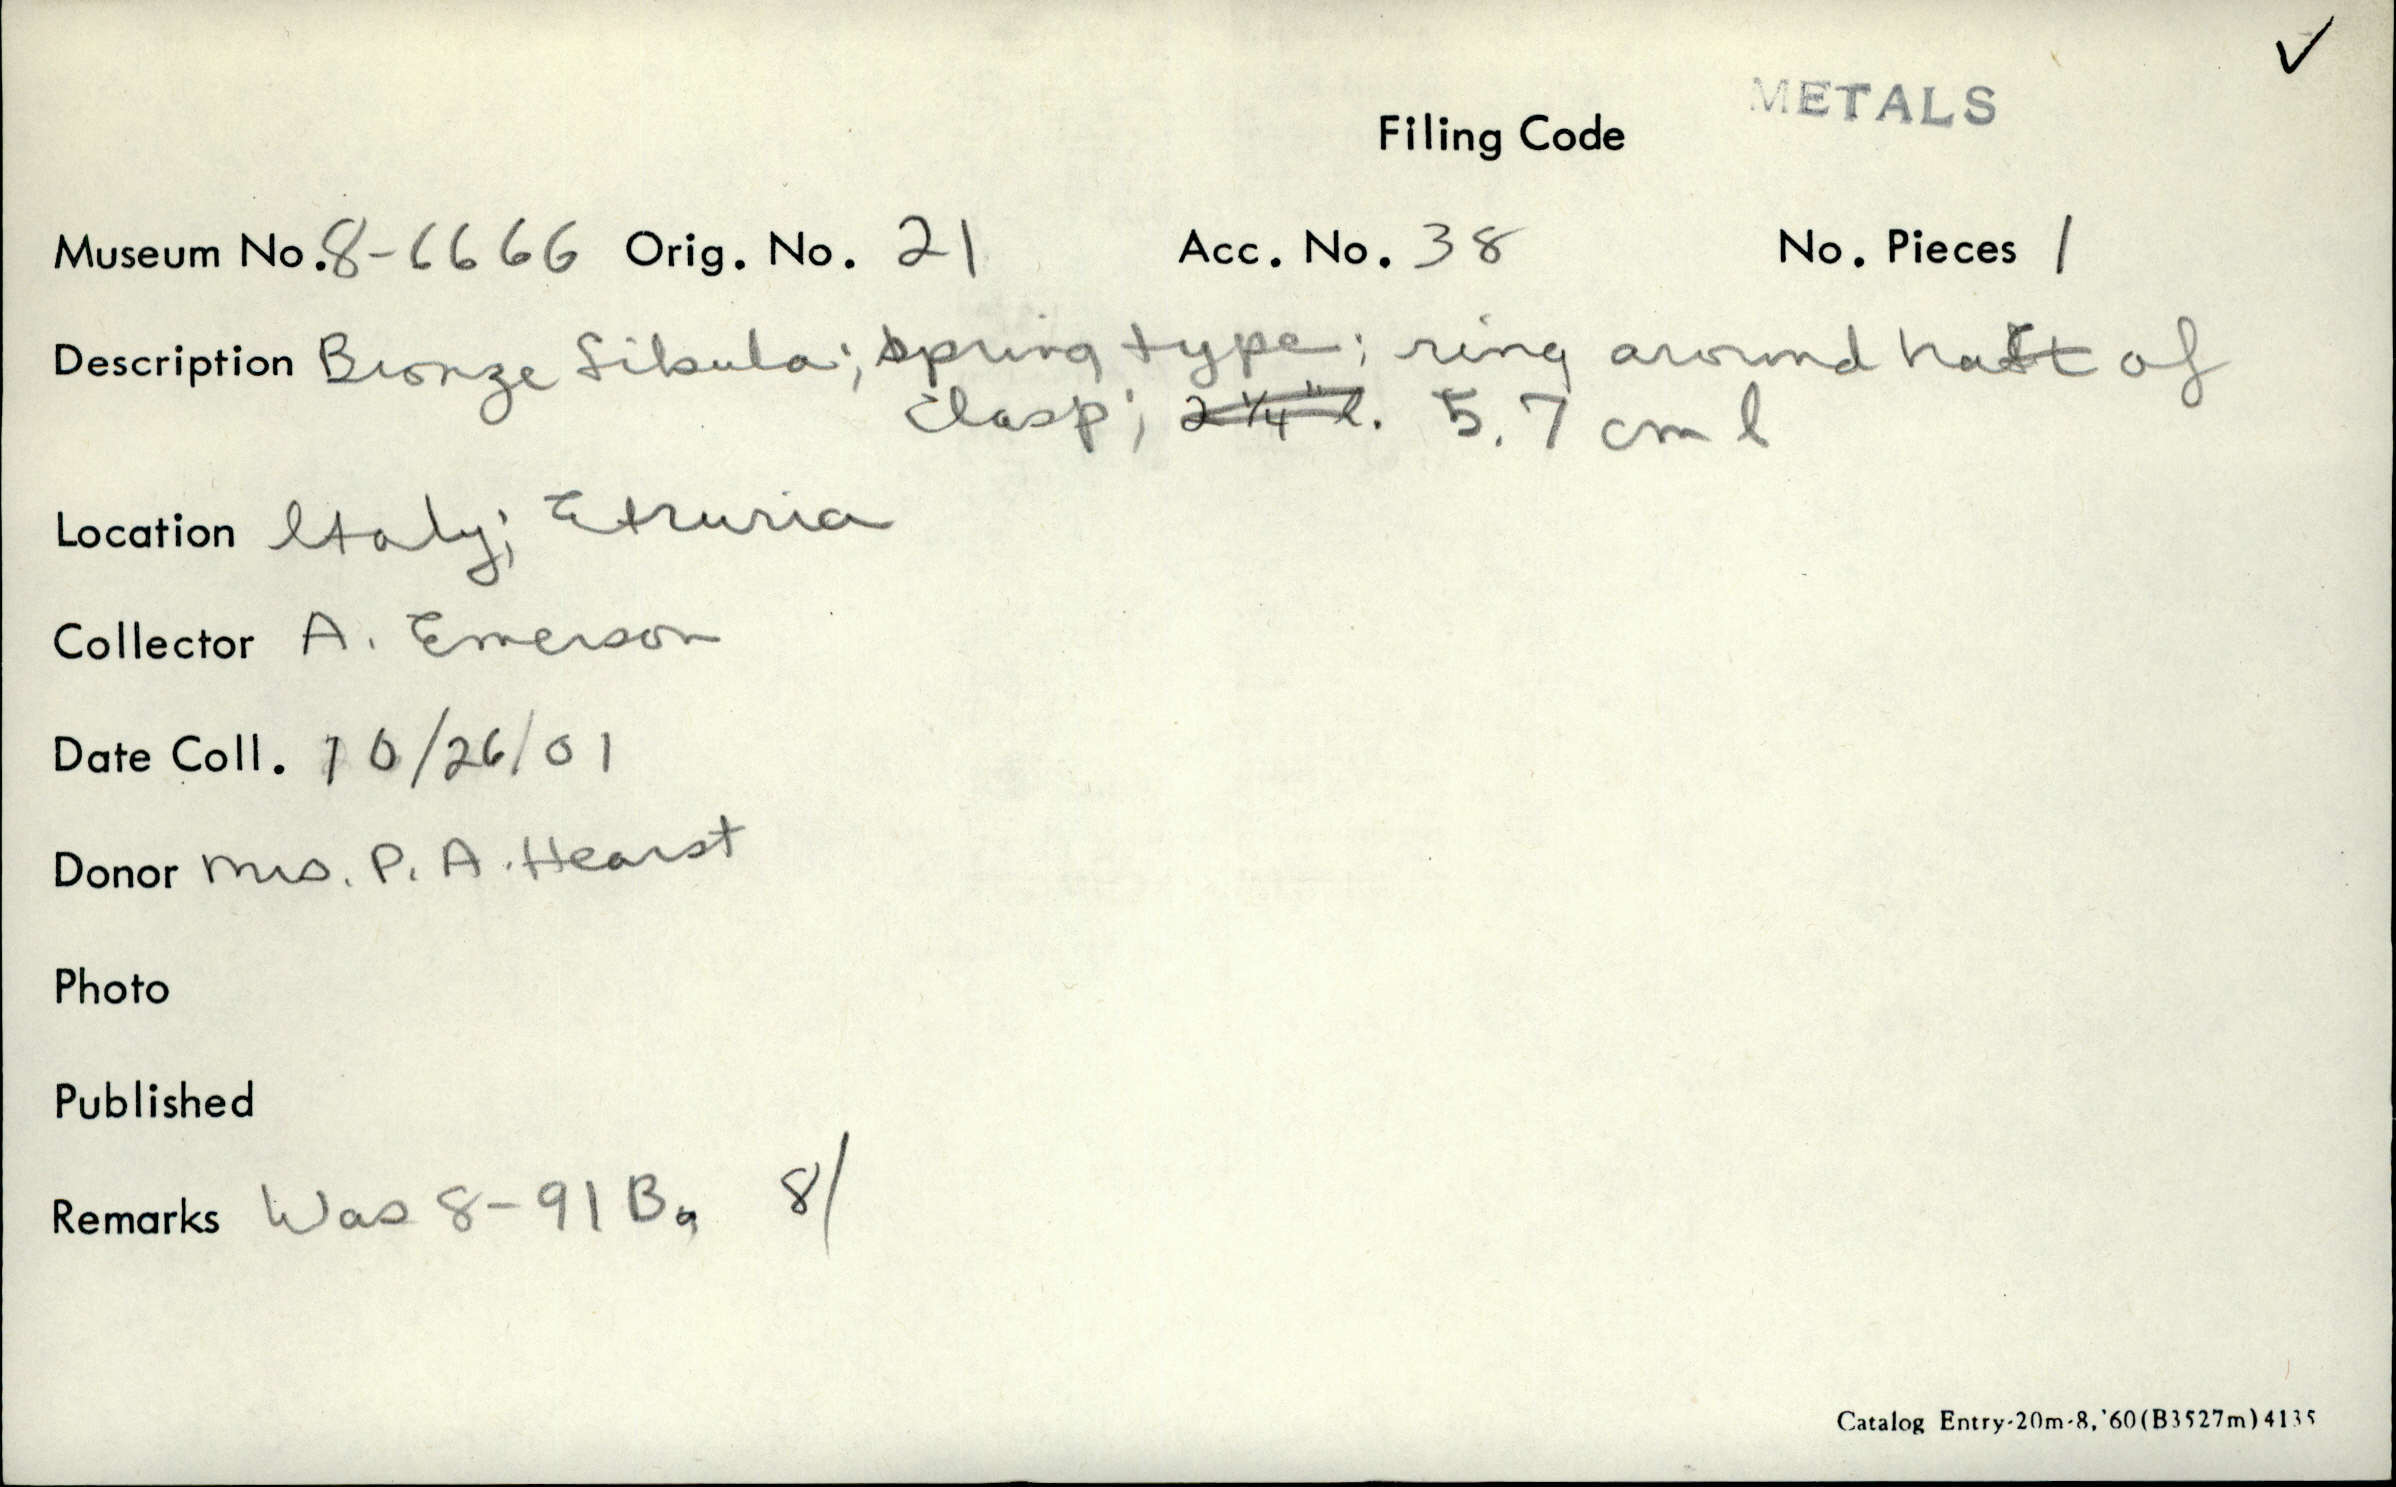 ✓
METALS
Filing Code
Museum No. 8-6666 Orig. No. 21 Acc. No. 38 No. Pieces 1
Description Bronze fibula; spring type; ring around haft of
clasp; 2 1/4" l. 5.7 cm l
Location Italy; Etruria
Collector A. Emerson
Date Coll. 10/26/01
Donor Mrs. P. A. Hearst
Photo
Published
Remarks Was 8-91B, 8/
Catalog Entry-20m-8,'60(B3527m)4135